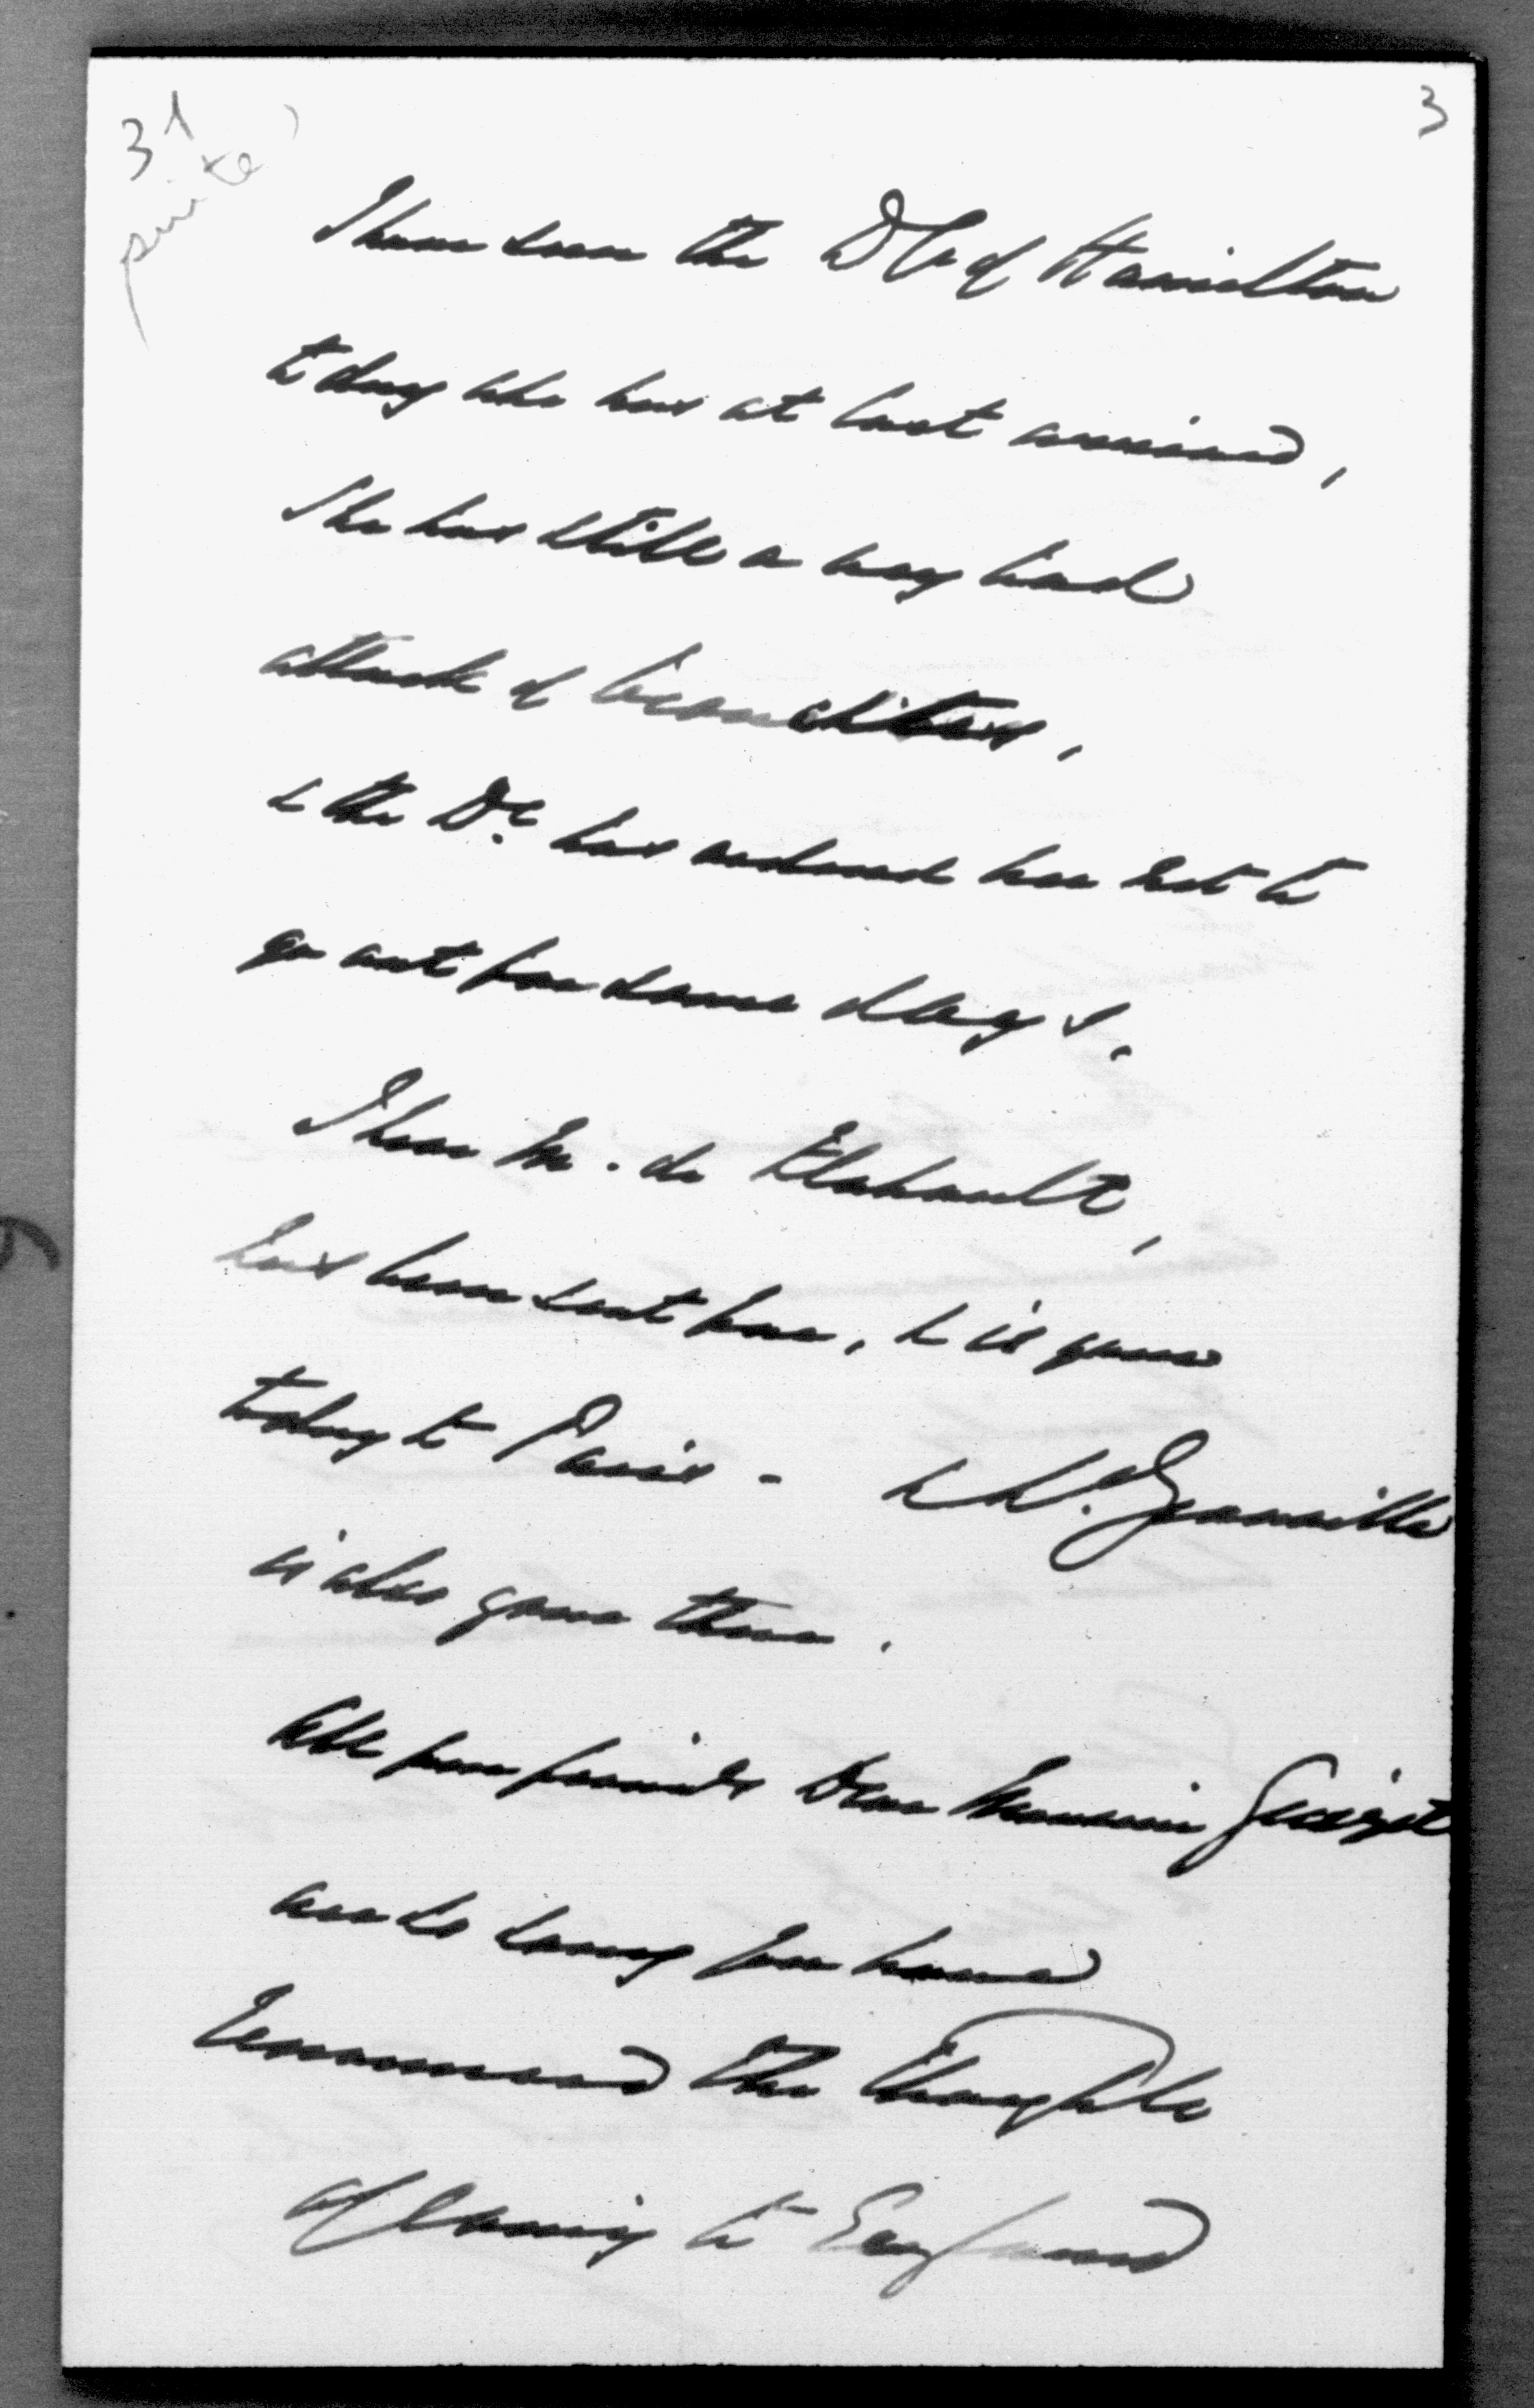 31
suite
3
I have seen the Dss of Hamilton
to day who has at last arrived,
She has still a very bad
attack of bronchitis,
& the Dr. has ordered her not to
go out for some days.
I hear M. de Flahault,
has been sent for, & is gone
today to Paris - & Ld. Granville
is also gone there.
All your friends Dear Monsieur Guizot
are so sorry you have
renounced the thoughts
of coming to England